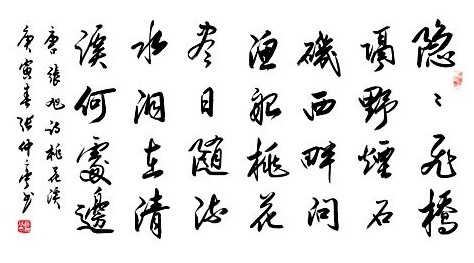 隐〻飞橋
隔野煙石
磯西畔问
渔船桃花
尽日随流
水洞在清
溪何處邊
唐張旭诗桃花溪
庚寅春张仲亭书